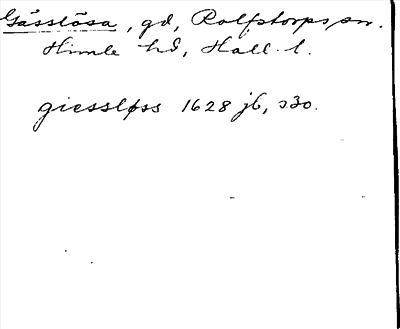 Gässlösa, gd, Rolfstorps sn.
Himle hd, Hall. l.
giessløss 1628 jb, s30.